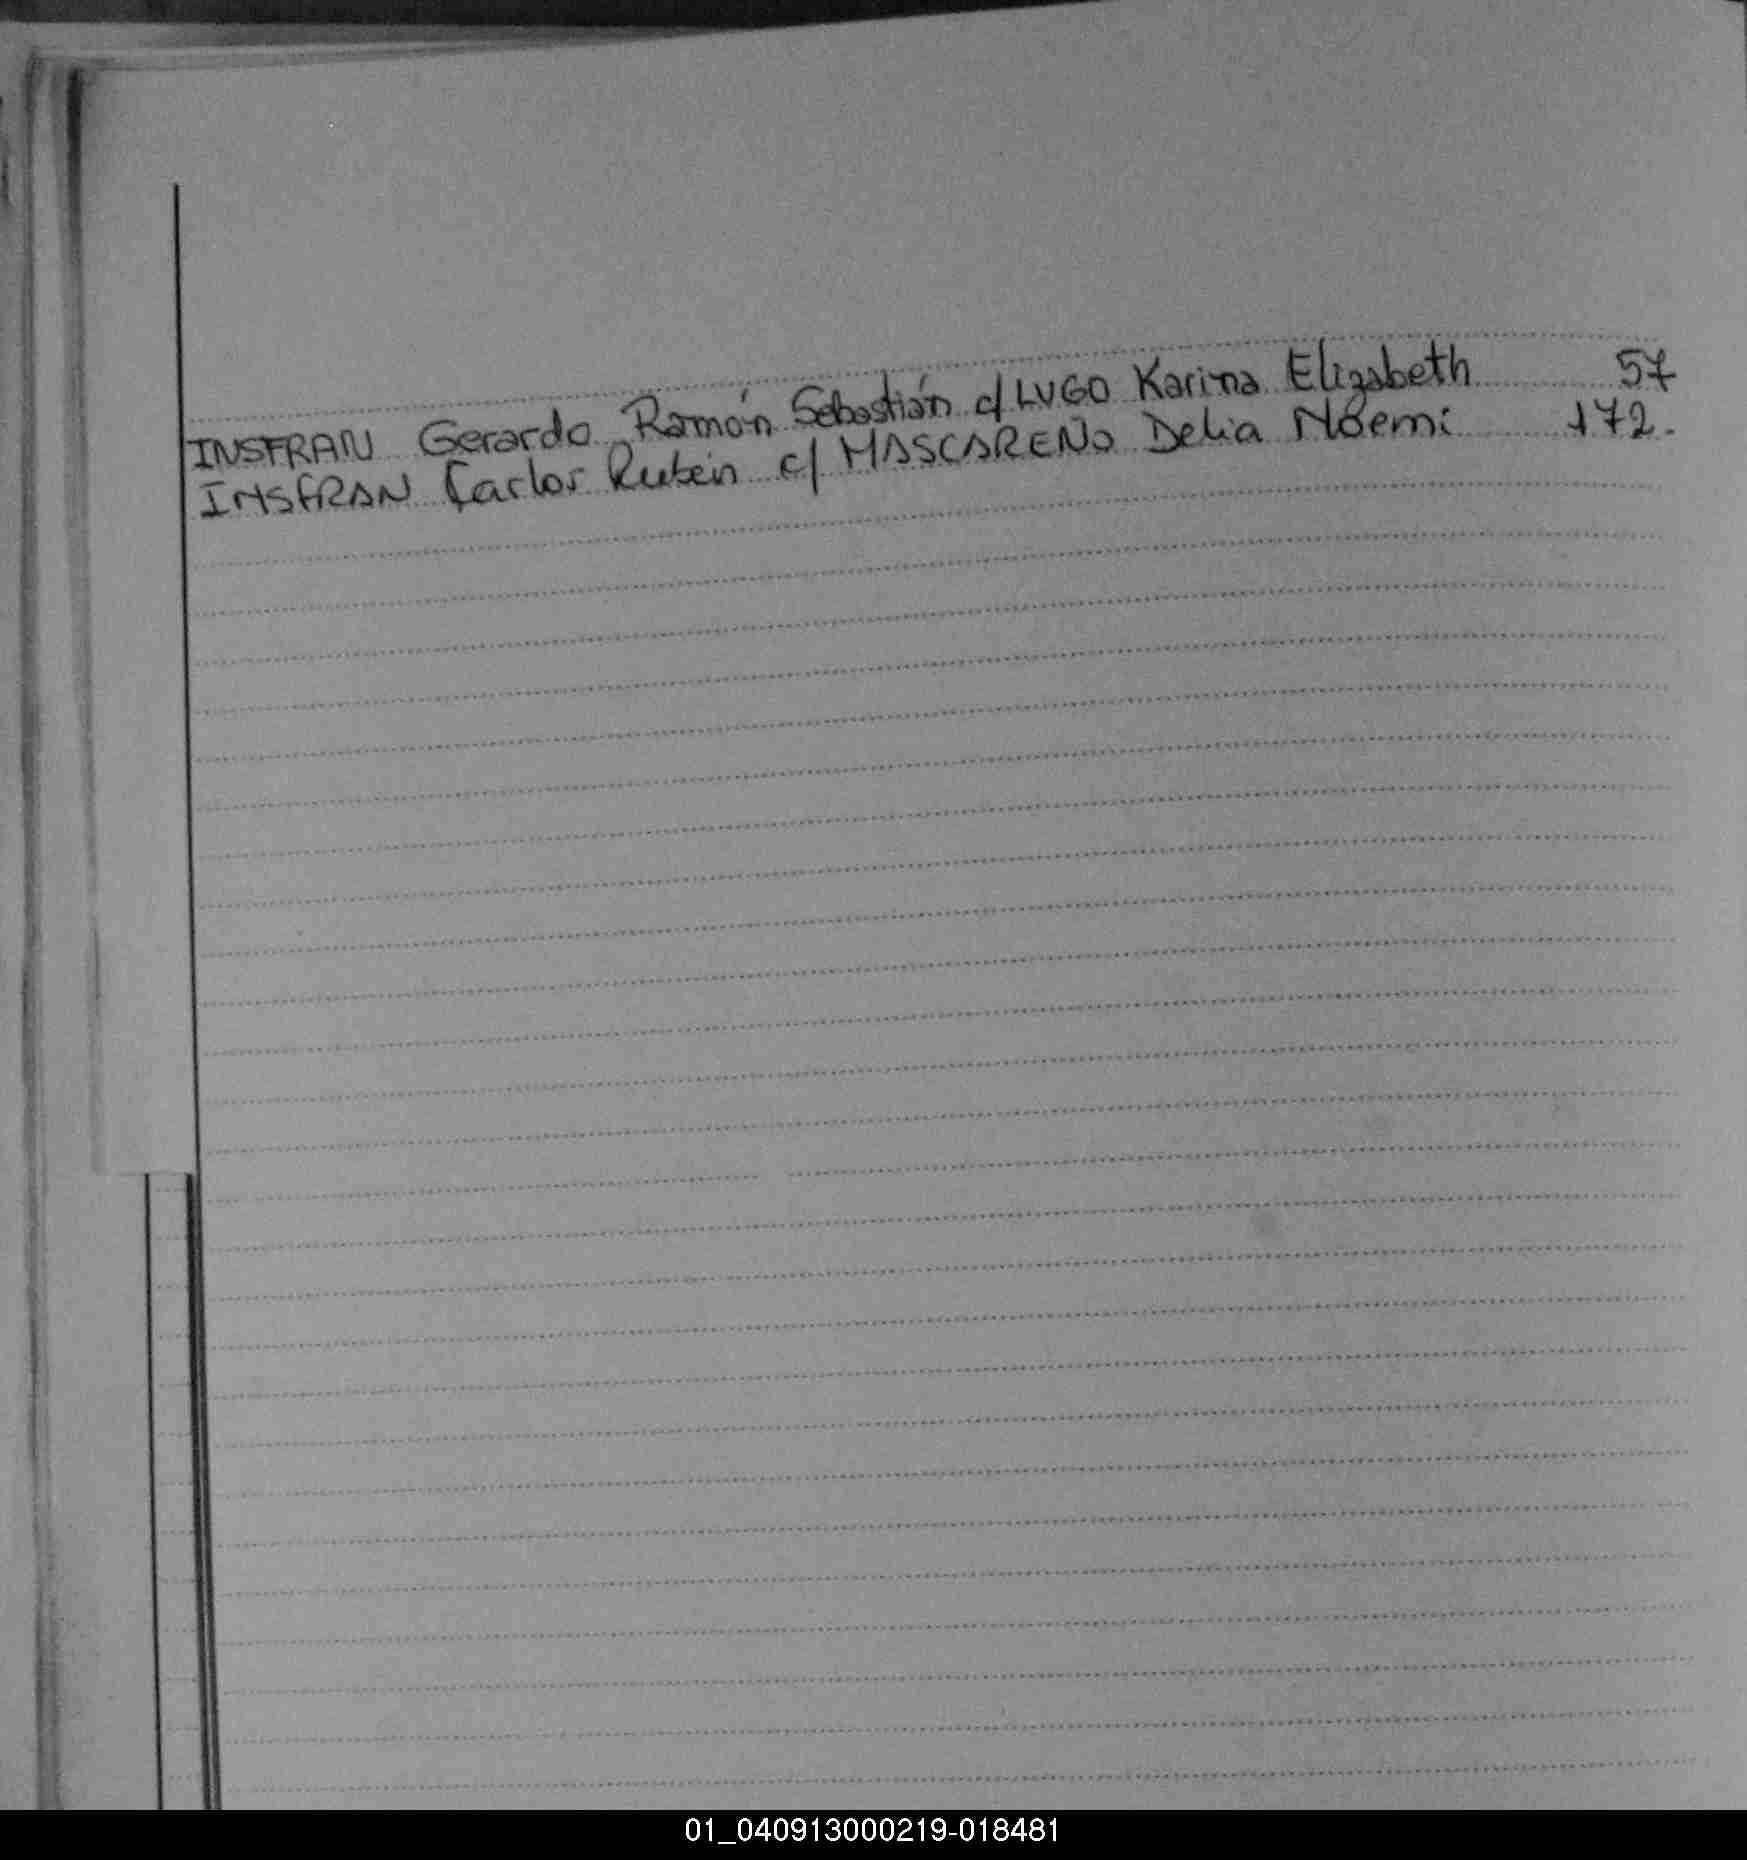 INSFRAN Gerardo Ramón Sebastián c/ LUGO Karina Elizabeth 57
INSFRAN Carlos Rubén c/ MASCAREÑO Delia Noemi 172.
01_040913000219-018481